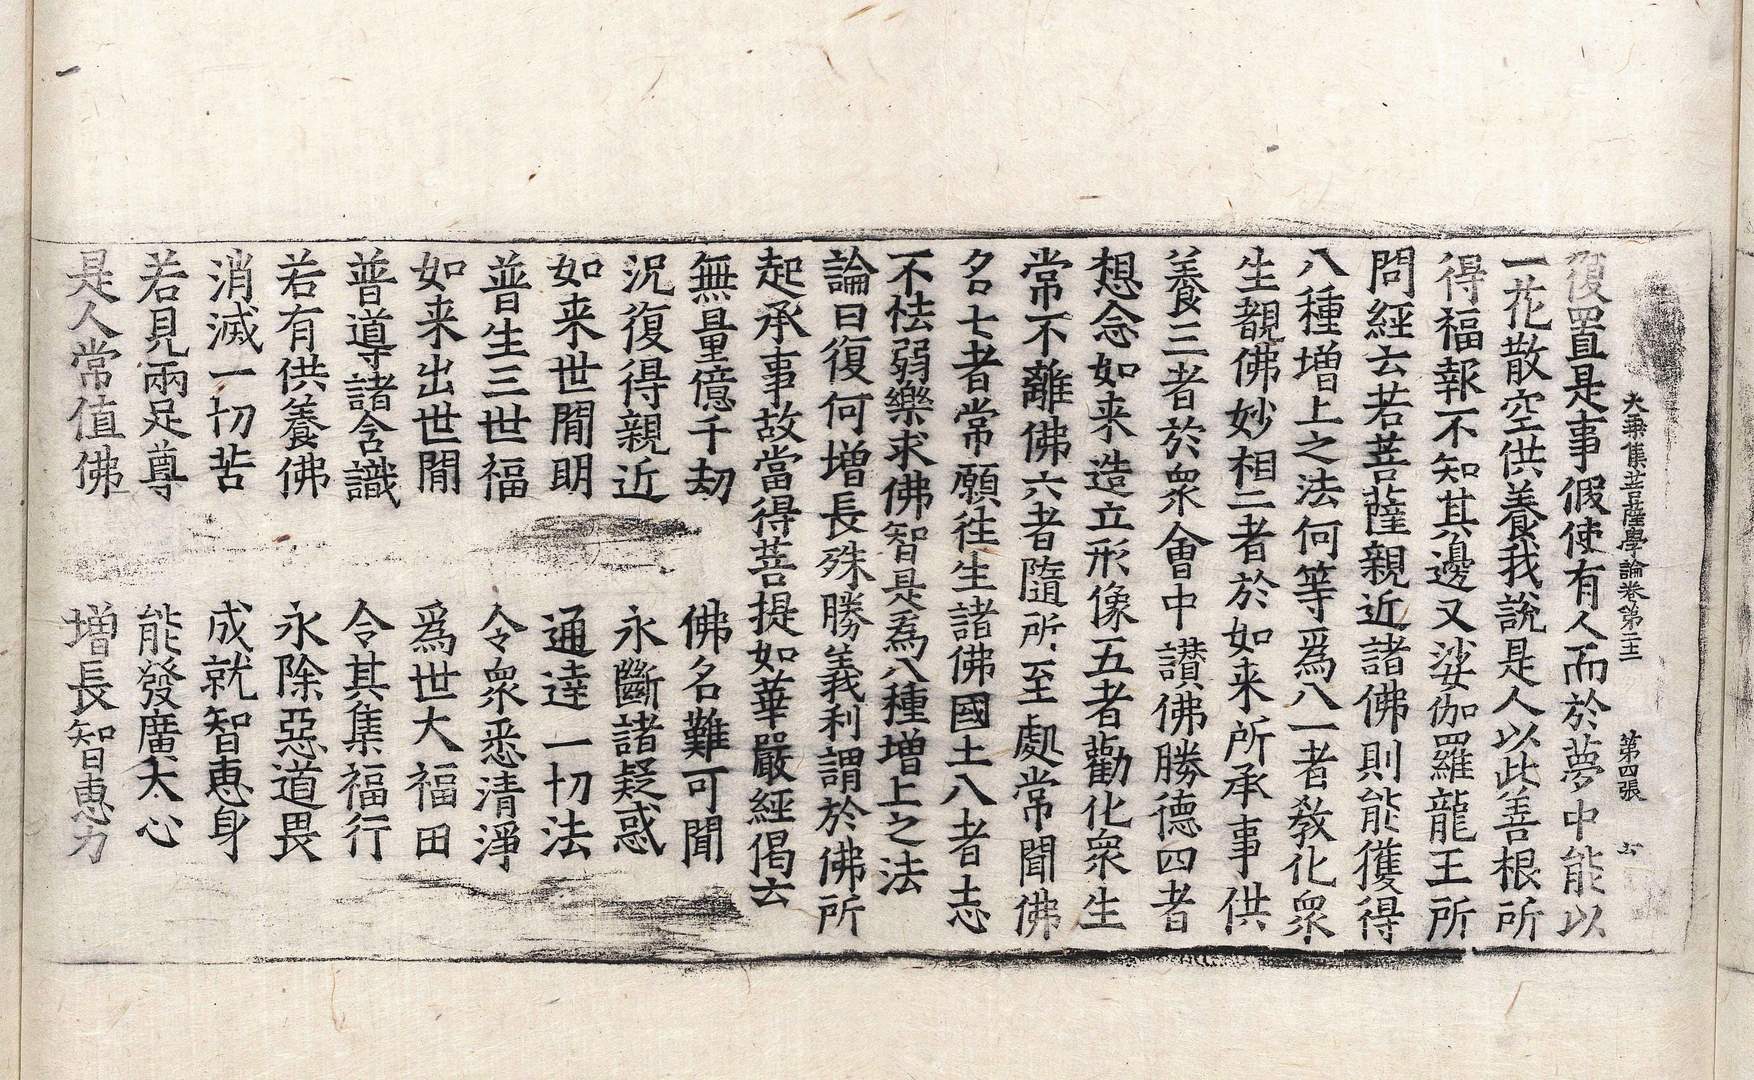 大乘集菩薩學論卷第二十三 第四張
復置是事假使有人而於夢中能以
一花散空供養我說是人以此善根所
得福報不知其邊又娑伽羅龍王所
問經云若菩薩親近諸佛則能獲得
八種增上之法何等爲八一者教化衆
生覩佛妙相二者於如来所承事供
養三者於衆會中讃佛勝德四者
想念如来造立形像五者勸化衆生
常不離佛六者隨所至處常聞佛
名七者常願往生諸佛國土八者志
不怯弱樂求佛智是爲八種增上之法
論曰復何增長殊勝義利謂於佛所
起承事故當得菩提如華嚴經偈云
無量億千劫 佛名難可聞
況復得親近 永斷諸疑惑
如来世間明 通達一切法
普生三世福 令衆悉清淨
如来出世間 爲世大福田
普導諸含識 令其集福行
若有供養佛 永除惡道畏
消滅一切苦 成就智惠身
若見兩足尊 能發廣大心
是人常值佛 增長智惠力